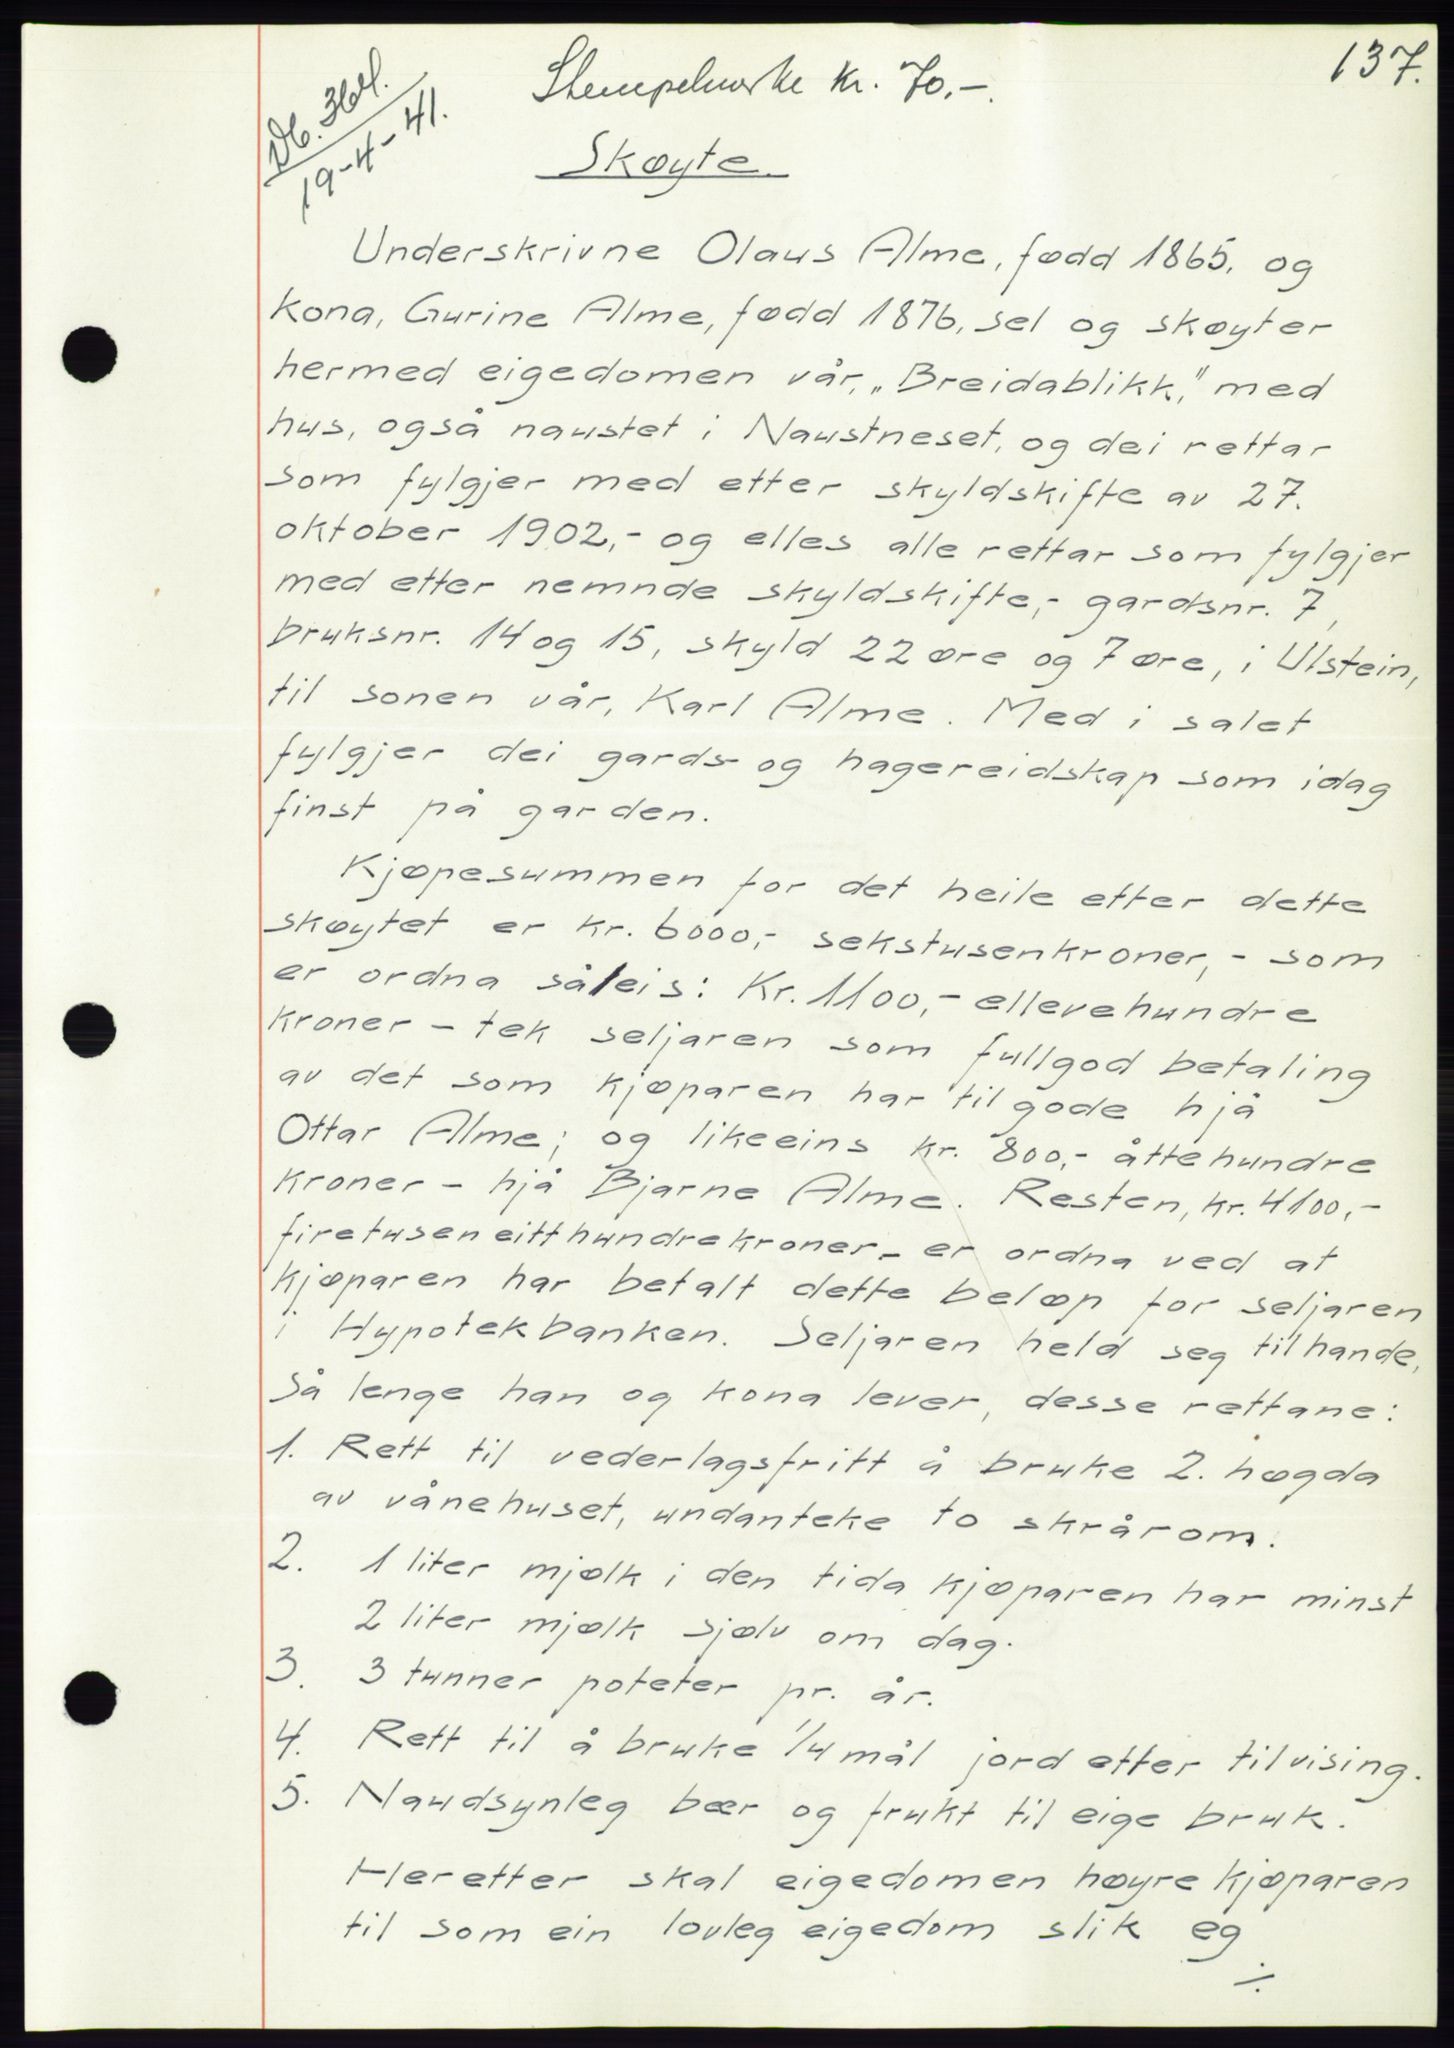 137.
Stempelmerke kr. 70.-.
19-4-41.
Skøyte.
Underskrivne Olaus Alme, fødd 1865, og
kona, Gurine Alme, fødd 1876, sel og skøyter
hermed eigedomen vår, „Breidablikk," med
hus, også naustet i Naustneset, og dei rettar
som fylgjer med etter skyldskifte av 27.
oktober 1902,- og elles alle rettar som fylgjer
med etter nemnde skyldskifte,- gardsnr. 7,
bruksnr. 14 og 15, skyld 22 øre og 7 øre, i Ulstein,
til sonen vår, Karl Alme. Med i salet
fylgjer dei gards- og hagereidskap som idag
finst på garden.
Kjøpesummen for det heile etter dette
skøytet er kr. 6000,- sekstusenkroner,- som
er ordna såleis: Kr. 1100,- ellevehundre
kroner - tek seljaren som fullgod betaling
av det som kjøparen har tilgode hjå
Ottar Alme; og likeeins kr. 800,- åttehundre
kroner - hjå Bjarne Alme. Resten, kr. 4100,-
firetuseneitthundrekroner- er ordna ved at
kjøparen har betalt dette beløp for seljaren
i Hypotekbanken. Seljaren held seg tilhande,
så lenge han og kona lever, desse rettane:
1. Rett til vederlagsfritt å bruke 2. høgda
av vånehuset, undanteke to skrårom.
2. 1 liter mjølk i den tida kjøparen har minst
2 liter mjølk sjølv om dag.
3. 3 tunner poteter pr. år.
4. Rett til å bruke 1/4 mål jord etter tilvising.
5. Naudsynleg bær og frukt til eige bruk.
Heretter skal eigedomen høyre kjøparen
til som ein lovleg eigedom slik eg
./.